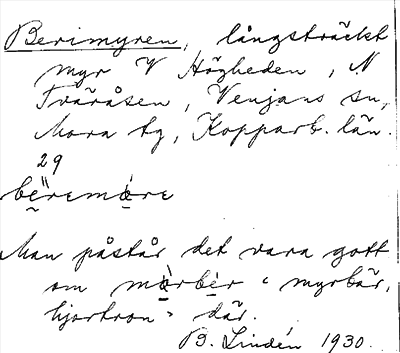 Berimyren, långsträckt
myr V Högheden, N
Tvåråsen, Venjans sn,
Mora tg, Kopparb. län.
29
bëremåre
Man påstår det vara gott
om mòrbèr "myrbär,
hjortron" där.
B. Lindén 1930.